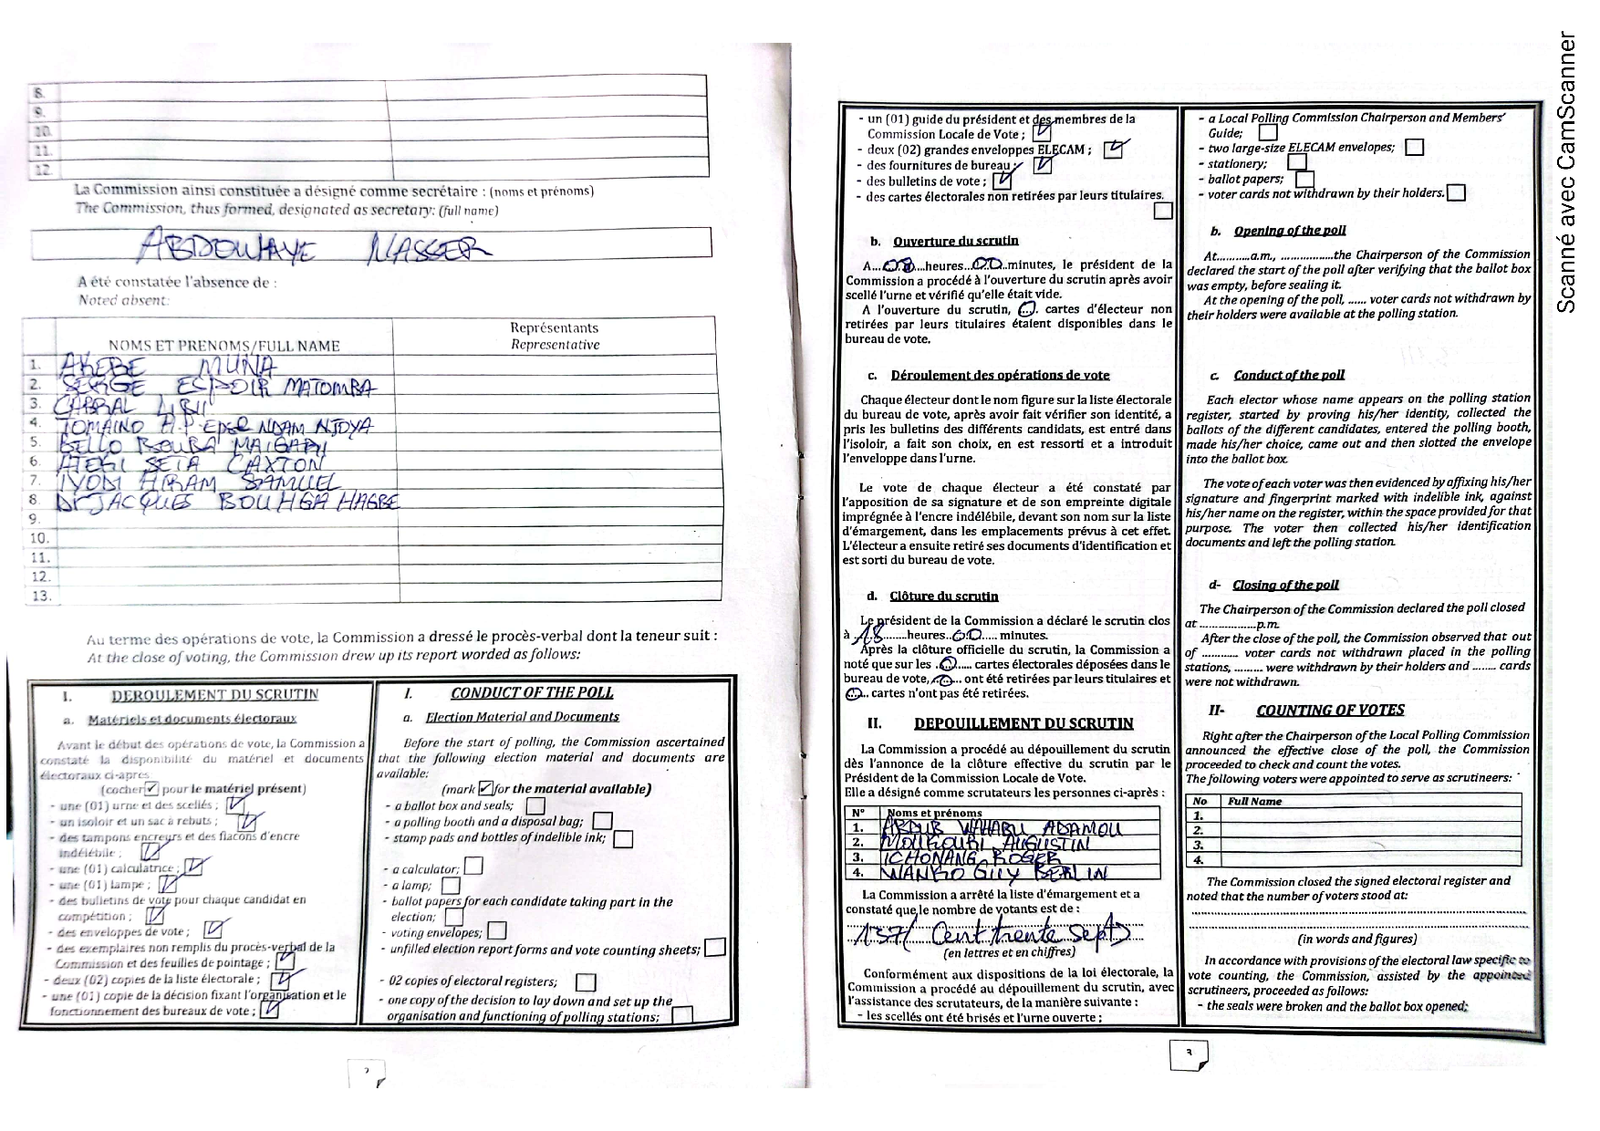 8.
9.
10.
11.
12.
La Commission ainsi constituée a désigné comme secrétaire : (noms et prénoms)
The Commission, thus formed, designated as secretary: (full name)
ABDOULAYE NASSER
A été constatée l'absence de :
Noted absent:
NOMS ET PRENOMS/FULL NAME
Représentants
Representative
1. AKEBE MUNA
2. SERGE ESPOIR MATOMBA
3. CABRAL LIBII
4. TOMAINO H.P Epse NDAM NJOYA
5. BELLO BOUBA MAIGARI
6. ATEKI SETA CAXTON
7. IYODI HIRAM SAMUEL
8. Dr JACQUES BOUHGA HAGBE
9.
10.
11.
12.
13.
Au terme des opérations de vote, la Commission a dressé le procès-verbal dont la teneur suit :
At the close of voting, the Commission drew up its report worded as follows:
I. DEROULEMENT DU SCRUTIN
a. Matériels et documents électoraux
Avant le début des opérations de vote, la Commission a
constaté la disponibilité du matériel et documents
électoraux ci-après
(cocher ✓ pour le matériel présent)
- une (01) urne et des scellés ;
- un isoloir et un sac à rebuts ;
- des tampons encreurs et des flacons d'encre
indélébile ;
- une (01) calculatrice ;
- une (01) lampe ;
- des bulletins de vote pour chaque candidat en
compétition ;
- des enveloppes de vote ;
- des exemplaires non remplis du procès-verbal de la
Commission et des feuilles de pointage ;
- deux (02) copies de la liste électorale ;
- une (01) copie de la décision fixant l'organisation et le
fonctionnement des bureaux de vote ;
I. CONDUCT OF THE POLL
a. Election Material and Documents
Before the start of polling, the Commission ascertained
that the following election material and documents are
available:
(mark ✓ for the material available)
- a ballot box and seals;
- a polling booth and a disposal bag;
- stamp pads and bottles of indelible ink;
- a calculator;
- a lamp;
- ballot papers for each candidate taking part in the
election;
- voting envelopes;
- unfilled election report forms and vote counting sheets;
- 02 copies of electoral registers;
- one copy of the decision to lay down and set up the
organisation and functioning of polling stations;
- un (01) guide du président et des membres de la
Commission Locale de Vote ;
- deux (02) grandes enveloppes ELECAM ;
- des fournitures de bureau ;
- des bulletins de vote ;
- des cartes électorales non retirées par leurs titulaires.
b. Ouverture du scrutin
A...08...heures...00...minutes, le président de la
Commission a procédé à l'ouverture du scrutin après avoir
scellé l'urne et vérifié qu'elle était vide.
A l'ouverture du scrutin, ..... cartes d'électeur non
retirées par leurs titulaires étaient disponibles dans le
bureau de vote.
c. Déroulement des opérations de vote
Chaque électeur dont le nom figure sur la liste électorale
du bureau de vote, après avoir fait vérifier son identité, a
pris les bulletins des différents candidats, est entré dans
l'isoloir, a fait son choix, en est ressorti et a introduit
l'enveloppe dans l'urne.
Le vote de chaque électeur a été constaté par
l'apposition de sa signature et de son empreinte digitale
imprégnée à l'encre indélébile, devant son nom sur la liste
d'émargement, dans les emplacements prévus à cet effet.
L'électeur a ensuite retiré ses documents d'identification et
est sorti du bureau de vote.
d. Clôture du scrutin
Le président de la Commission a déclaré le scrutin clos
à 18.......heures...00..... minutes.
Après la clôture officielle du scrutin, la Commission a
noté que sur les ...0.... cartes électorales déposées dans le
bureau de vote, ..0.. ont été retirées par leurs titulaires et
..0.. cartes n'ont pas été retirées.
II. DEPOUILLEMENT DU SCRUTIN
La Commission a procédé au dépouillement du scrutin
dès l'annonce de la clôture effective du scrutin par le
Président de la Commission Locale de Vote.
Elle a désigné comme scrutateurs les personnes ci-après :
N° Noms et prénoms
1. ABDUR WAHABU ADAMOU
2. MOUKOURI AUGUSTIN
3. ICHONANG ROGER
4. WANKO GUY BERLIN
La Commission a arrêté la liste d'émargement et a
constaté que le nombre de votants est de :
137/ Cent trente sept
(en lettres et en chiffres)
Conformément aux dispositions de la loi électorale, la
Commission a procédé au dépouillement du scrutin, avec
l'assistance des scrutateurs, de la manière suivante :
- les scellés ont été brisés et l'urne ouverte ;
- a Local Polling Commission Chairperson and Members'
Guide;
- two large-size ELECAM envelopes;
- stationery;
- ballot papers;
- voter cards not withdrawn by their holders.
b. Opening of the poll
At..........a.m., ................the Chairperson of the Commission
declared the start of the poll after verifying that the ballot box
was empty, before sealing it.
At the opening of the poll, ...... voter cards not withdrawn by
their holders were available at the polling station.
c. Conduct of the poll
Each elector whose name appears on the polling station
register, started by proving his/her identity, collected the
ballots of the different candidates, entered the polling booth,
made his/her choice, came out and then slotted the envelope
into the ballot box.
The vote of each voter was then evidenced by affixing his/her
signature and fingerprint marked with indelible ink, against
his/her name on the register, within the space provided for that
purpose. The voter then collected his/her identification
documents and left the polling station.
d- Closing of the poll
The Chairperson of the Commission declared the poll closed
at ..................p.m.
After the close of the poll, the Commission observed that out
of .......... voter cards not withdrawn placed in the polling
stations, ......... were withdrawn by their holders and ........ cards
were not withdrawn.
II- COUNTING OF VOTES
Right after the Chairperson of the Local Polling Commission
announced the effective close of the poll, the Commission
proceeded to check and count the votes.
The following voters were appointed to serve as scrutineers:
No Full Name
1.
2.
3.
4.
The Commission closed the signed electoral register and
noted that the number of voters stood at:
(in words and figures)
In accordance with provisions of the electoral law specific to
vote counting, the Commission, assisted by the appointed
scrutineers, proceeded as follows:
- the seals were broken and the ballot box opened;
3
Scanné avec CamScanner